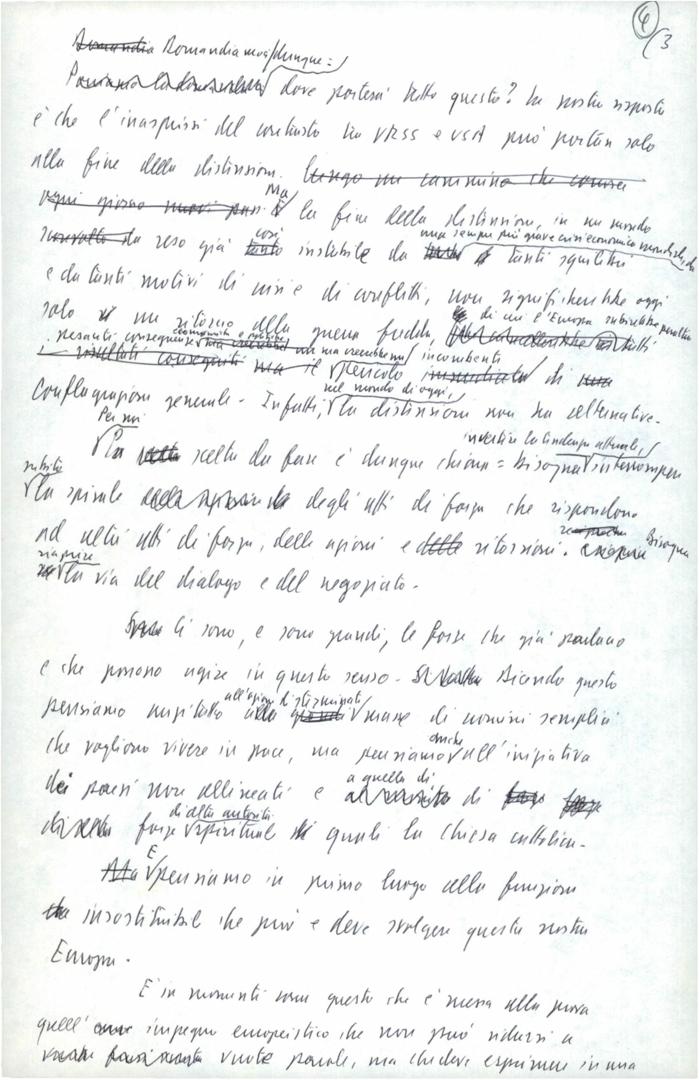 4/3
Domandiamoci dunque:
dove porterà tutto questo? La nostra risposta
è che l'inasprirsi del contrasto tra URSS e USA può portare solo
alla fine della distensione. Lungo un cammino che conosce
ogni giorno nuovi passi. Ma la fine della distensione, in un mondo
reso già così instabile da una sempre più grave crisi economica mondiale, da tanti squilibri
e da tanti motivi di crisi e di conflitti, non significherebbe oggi
solo un ritorno alla guerra fredda, di cui l'Europa subirebbe peraltro
pesanti conseguenze economiche e politiche, ma crerebbe un pericolo incombente di
conflagrazione generale. Infatti, nel mondo di oggi, la distensione non ha alternative.
Per noi la scelta da fare è dunque chiara: bisogna invertire la tendenza attuale, interrompere
subito la spirale degli atti di forza che rispondono
ad altri atti di forza, delle azioni e ritorsioni. Bisogna
riaprire la via del dialogo e del negoziato.
Ci sono, e sono grandi, le forze che già parlano
e che possono agire in questo senso. Dicendo questo
pensiamo anzitutto all'azione di sterminate masse di uomini semplici
che vogliono vivere in pace, ma pensiamo anche all'iniziativa
dei paesi non allineati e a quella di
forze di alta autorità spirituale quali la Chiesa cattolica.
E pensiamo in primo luogo alla funzione
insostituibile che può e deve svolgere questa nostra
Europa.
È in momenti come questo che è messo alla prova
quell'impegno europeistico che non può ridursi a
vuote parole, ma che deve esprimersi in una